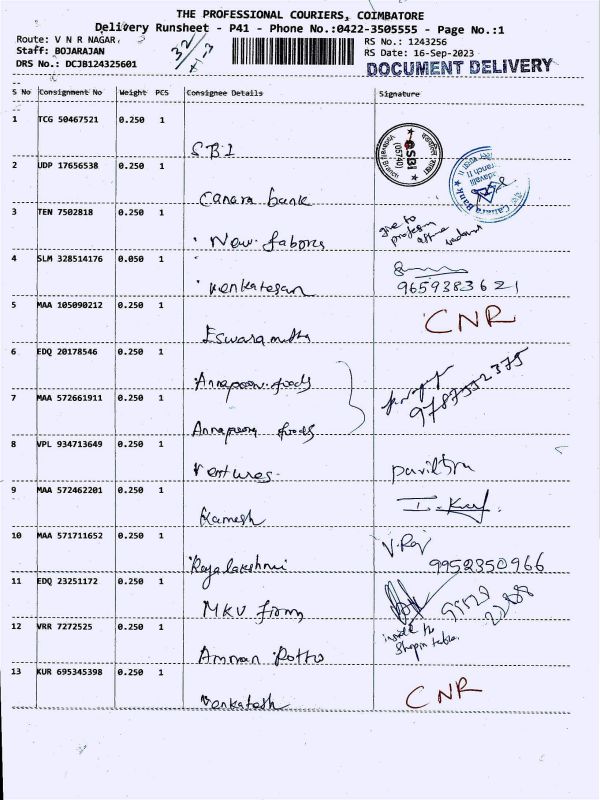 THE PROFESSIONAL COURIERS, COIMBATORE
Delivery Runsheet - P41 - Phone No.:0422-3505555 - Page No.:1
Route: V N R NAGAR
Staff: BOJARAJAN
DRS No.: DCJB124325601
RS No.: 1243256
RS Date: 16-Sep-2023
DOCUMENT DELIVERY
S No Consignment No Weight PCS Consignee Details Signature
1 TCG 50467521 0.250 1
SBI
SBI (05740)
2 UDP 17656538 0.250 1
Canara bank
Canara Bank
3 TEN 7502818 0.250 1
New fabons
give to
4 SLM 328514176 0.050 1
Venkatesan 9659383621
5 MAA 105090212 0.250 1
Eswaramutha CNR
6 EDQ 20178546 0.250 1
Annapoorna foods
7 MAA 572661911 0.250 1
Annapoorna foods 9787552375
8 VPL 934713649 0.250 1
Ventures
9 MAA 572462201 0.250 1
Ramesh
10 MAA 571711652 0.250 1 V.Raj
Rajalakshmi 9952350966
11 EDQ 23251172 0.250 1
MKV firm
12 VRR 7272525 0.250 1
Amman
13 KUR 695345398 0.250 1
Venkatesh CNR